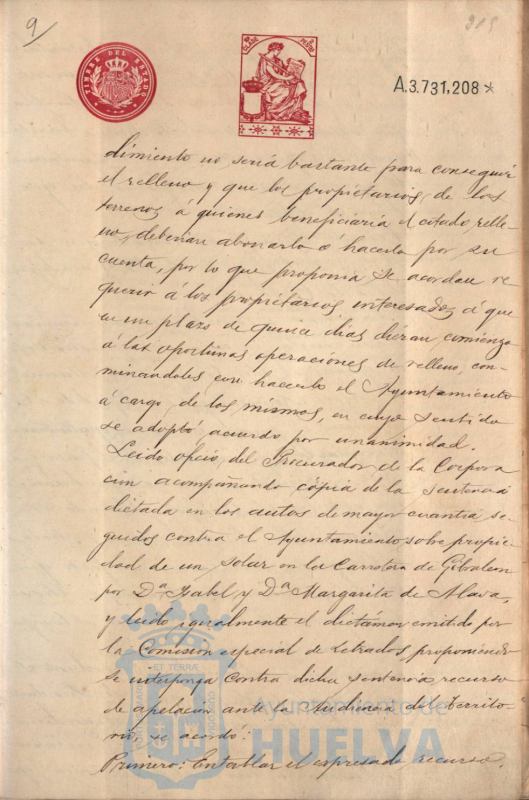 9
215
TIMBRE DEL ESTADO
A.3.731,208*
dimiento no seria bastante para conseguir
el relleno y que los propietarios, de los
terrenos á quienes beneficiaria el citado relle-
no, deberian abonarlo ó hacerlo por su
cuenta, por lo que proponia se acordase re
querir á los propietarios interesados á que
en un plazo de quince dias dieran comienzo
á las oportunas operaciones de relleno, con-
minándoles con hacerlo el Ayuntamiento
á cargo de los mismos, en cuyo sentido
se adoptó acuerdo por unanimidad.
Leido oficio del Procurador de la Corpora
cion acompañando cópia de la sentencia
dictada en los autos de mayor cuantia se-
guidos contra el Ayuntamiento sobre propie-
dad de un solar en la Carretera de Gibraleon
por Dª Isabel y Dª Margarita de Alava,
y leido igualmente el dictámen emitido por
la Comision especial de Letrados, proponiendo
se interponga contra dicha sentencia recurso
de apelacion ante la Audiencia del Territo-
rio, se acordó:
Primero: Entablar el expresado recurso.
Ayuntamiento de
HUELVA